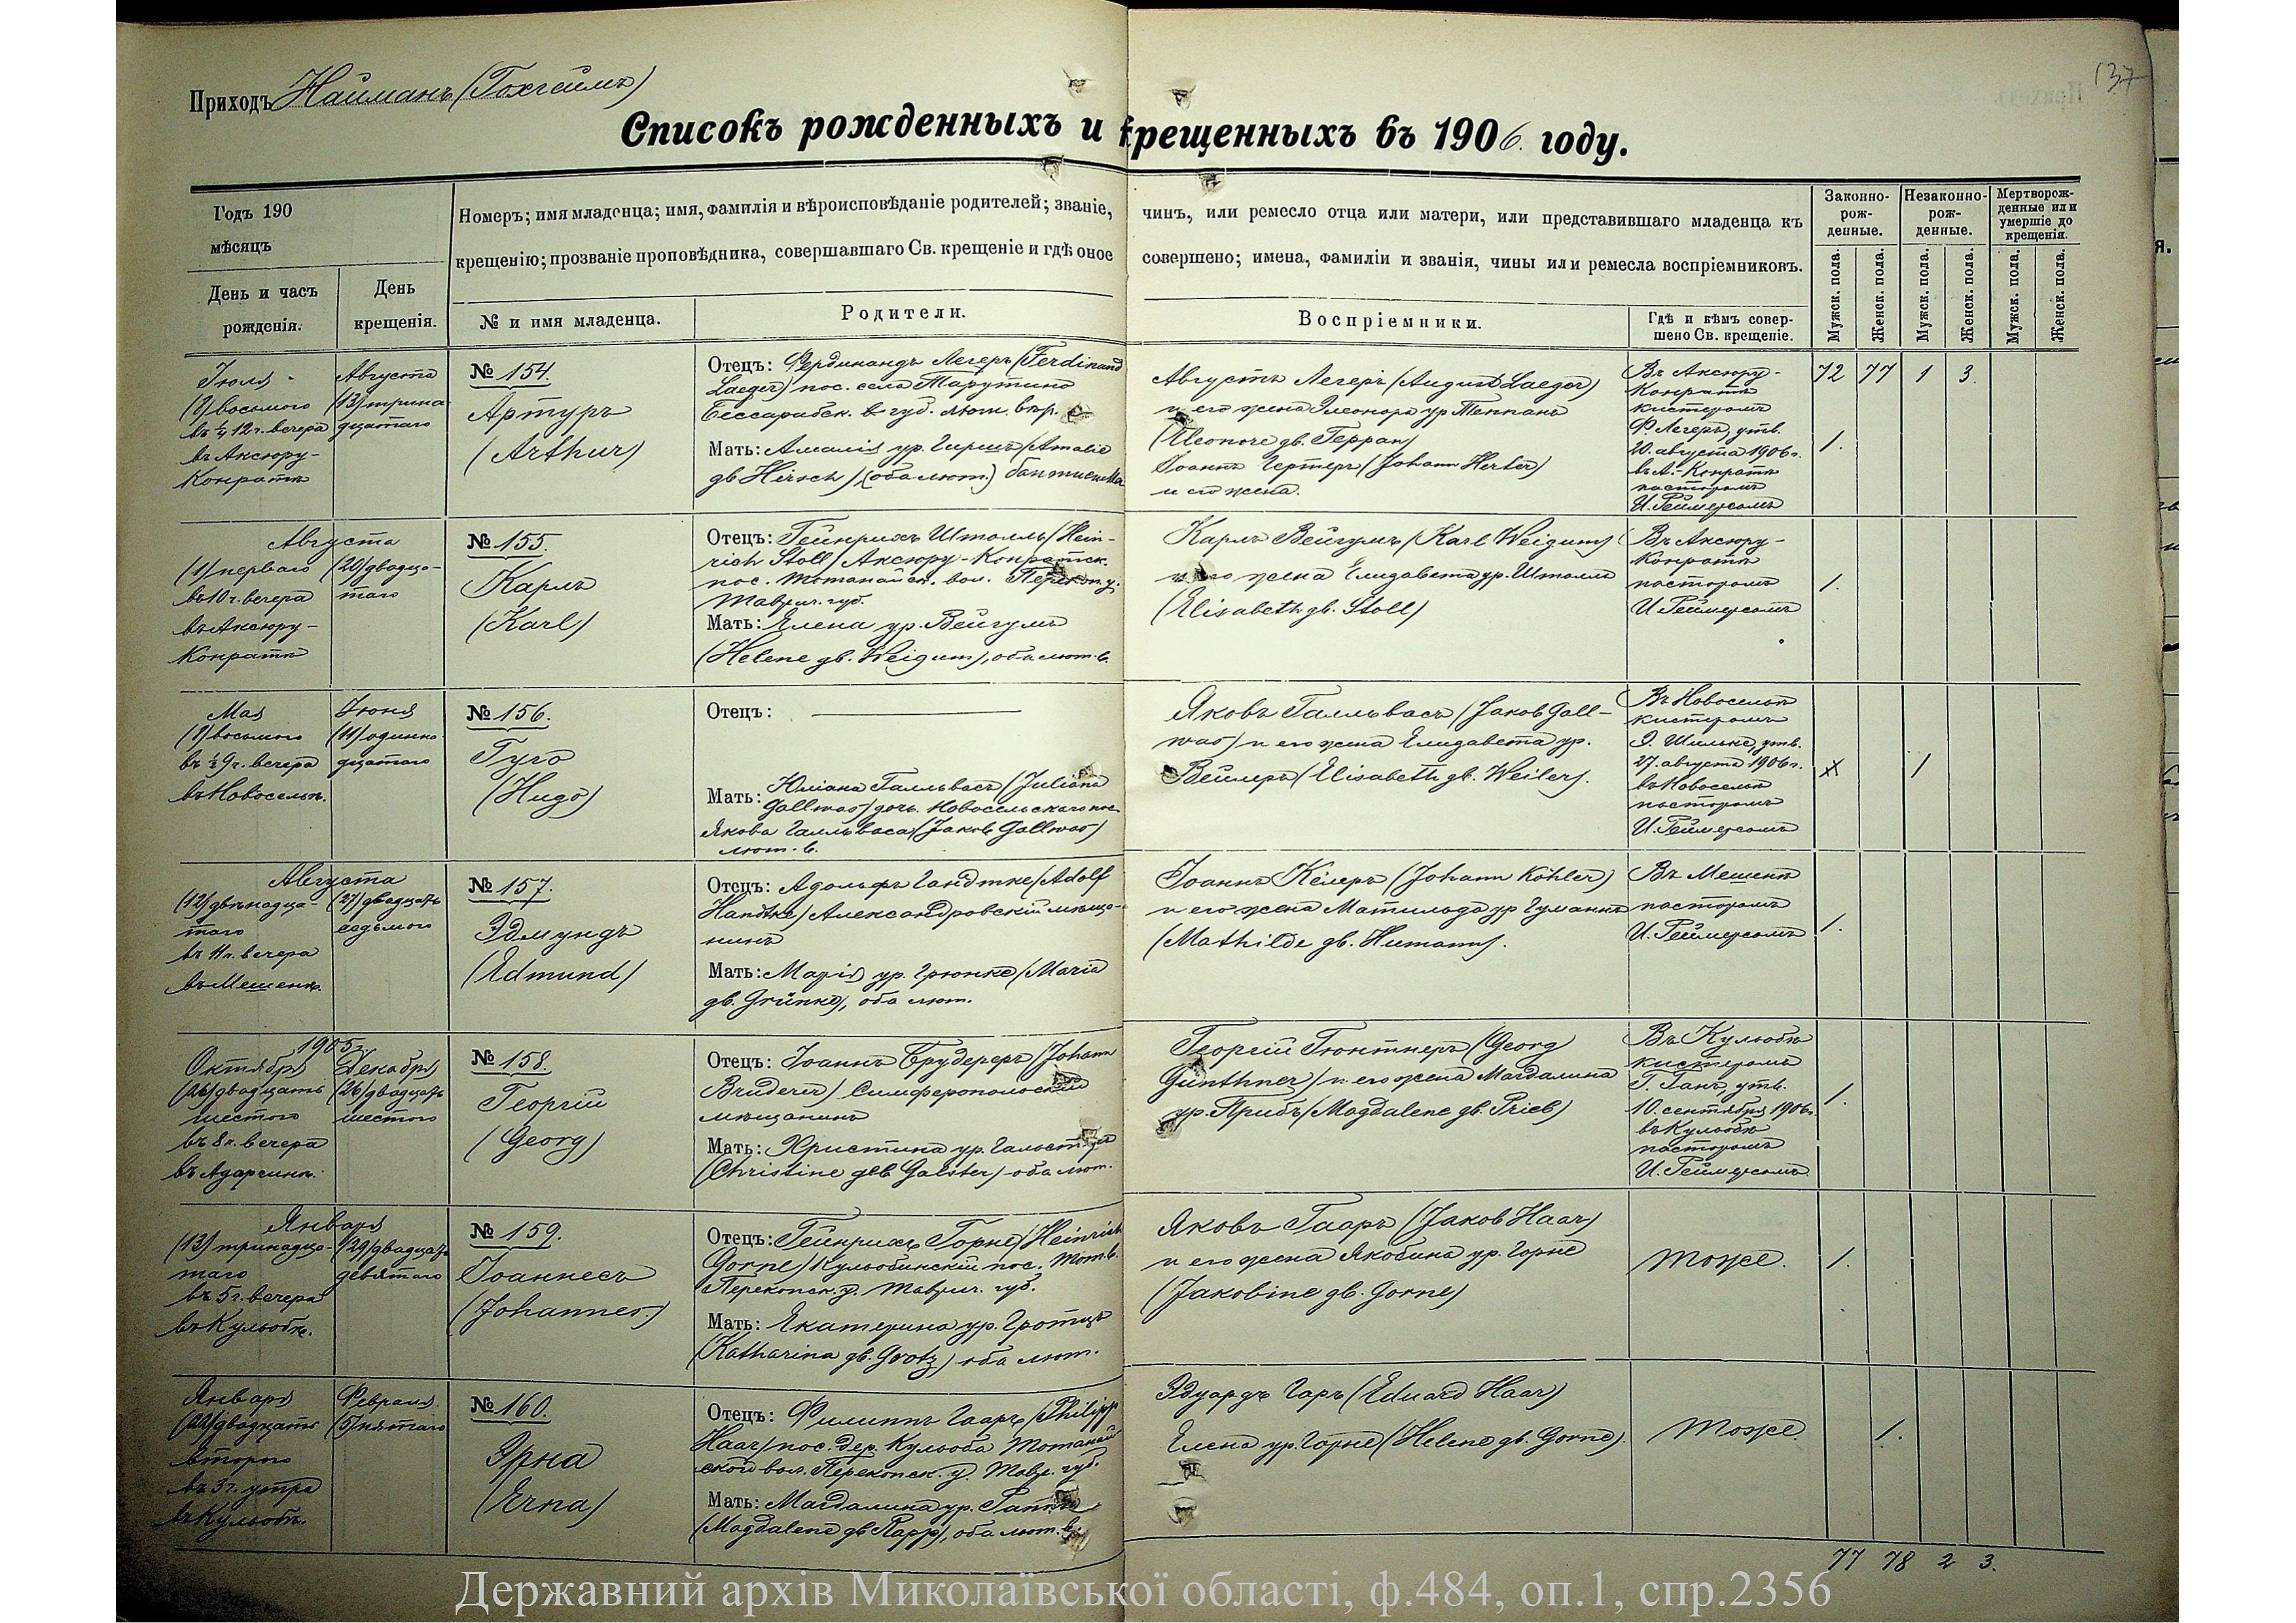 Приходъ Найманъ (Гохгеймъ)
137
Списокъ рожденныхъ и крещенныхъ въ 1906. году.
Годъ 190
мѣсяцъ
День и часъ
рожденія.
День
крещенія.
Номеръ; имя младенца; имя, фамилія и вѣроисповѣданіе родителей; званіе,
крещенію; прозваніе проповѣдника, совершавшаго Св. крещеніе и гдѣ оное
№ и имя младенца.
Родители.
чинъ, или ремесло отца или матери, или представившаго младенца къ
совершено; имена, фамиліи и званія, чины или ремесла воспріемниковъ.
Воспріемники.
Гдѣ и кѣмъ совер-
шено Св. крещеніе.
Законно-
рож-
денные.
Незаконно-
рож-
денные.
Мертворож-
денные или
умершіе до
крещенія.
Мужск. пола.
Женск. пола.
Мужск. пола.
Женск. пола.
Мужск. пола.
Женск. пола.
Іюля
(8) восьмого
въ ¼ 12 ч. вечера
въ Аксюру-
Конратѣ
Августа
(13) трина-
дцатаго
№ 154.
Артуръ
(Arthur)
Отецъ: Фердинандъ Легеръ (Ferdinand
Laeger) пос. села Тарутино
Бессарабск. губ. лют. вѣр.
Мать: Амалія ур. Гиршъ (Amalie
gb. Hirsch) (оба лют.) баптистка
Августъ Легеръ (August Laeger)
и его жена Элеонора ур Теппанъ
(Eleonore gb. Террап)
Іоаннъ Гертеръ (Johann Herter)
и его жена.
Въ Аксюру-
Конратѣ
кистеромъ
Ф. Легеръ, утв.
20. августа 1906 г.
въ А.-Конратѣ
пасторомъ
И. Геймерсомъ
72 77 1 3.
1.
Августа
(1) перваго
въ 10 ч. вечера
въ Аксюру-
Конратѣ
(20) двадца-
таго
№ 155.
Карлъ
(Karl)
Отецъ: Гейнрихъ Штолль (Hein-
rich Stoll) Аксюру-Конратск.
пос. Тотанайск. вол. Перекоп. у.
Таврич. губ.
Мать: Елена ур. Вейгумъ
(Helene gb. Weigum), оба лют. в.
Карлъ Вейгумъ (Karl Weigum)
и его жена Елизавета ур. Штолль
(Elisabeth gb. Stoll)
Въ Аксюру-
Конратѣ
пасторомъ
И. Геймерсомъ
1.
Мая
(8) восьмого
въ ½ 9 ч. вечера
въ Новосельѣ.
Іюня
(11) одинна-
дцатаго
№ 156.
Гуго
(Hugo)
Отецъ:
Мать: Юліана Галльвасъ (Juliana
Gallwas) дочь Новосельскаго пос.
Якова Галльваса (Jakob Gallwas)
лют. в.
Яковъ Галльвасъ (Jakob Gall-
was) и его жена Елизавета ур.
Вейлеръ (Elisabeth gb. Weiler).
Въ Новосельѣ
кистеромъ
Э. Шильке, утв.
27. августа 1906 г.
въ Новосельѣ
пасторомъ
И. Геймерсомъ
1
Августа
(12) двѣнадца-
таго
въ 11 ч. вечера
въ Мешенѣ.
(27) двадцать
седьмого
№ 157.
Эдмундъ
(Edmund)
Отецъ: Адольфъ Гандтке (Adolf
Handtke) Александровскій мѣща-
нинъ
Мать: Марія ур. Грюнке (Maria
gb. Grünke), оба лют.
Іоаннъ Кёлеръ (Johann Köhler)
и его жена Матильда ур Гуманнъ
(Mathilde gb. Humann).
Въ Мешенѣ
пасторомъ
И. Геймерсомъ
1.
1905 г.
Октября
(26) двадцать
шестого
въ 8 ч. вечера
въ Адаргинѣ.
Декабря
(26) двадцать
шестого
№ 158.
Георгій
(Georg)
Отецъ: Іоаннъ Брудереръ (Johann
Bruderer) Симферопольскій
мѣщанинъ
Мать: Христина ур. Гальстеръ
(Christine geb Galster) оба лют.
Георгій Гюнтнеръ (Georg
Günthner) и его жена Магдалина
ур. Прибъ (Magdalene gb. Prieb)
Въ Кульобѣ
кистеромъ
Г. Ганъ, утв.
10. сентября 1906 г.
въ Кульобѣ
пасторомъ
И. Геймерсомъ
1.
Января
(13) тринадца-
таго
въ 5 ч. вечера
въ Кульобѣ.
(29) двадцать
девятаго
№ 159.
Іоаннесъ
(Johannes)
Отецъ: Гейнрихъ Горне (Heinrich
Gorne) Кульобинскій пос. Тот. в.
Перекопск. у. Таврич. губ.
Мать: Екатерина ур. Гротцъ
(Katharina gb. Grotz) оба лют.
Яковъ Гааръ (Jakob Haar)
и его жена Якобина ур. Горне
(Jakobine gb. Gorne)
Тоже.
1.
Января
(22) двадцать
второго
въ 3 ч. утра
въ Кульобѣ.
Февраля
(5) пятаго
№ 160.
Эрна
(Erna)
Отецъ: Филиппъ Гааръ (Philipp
Haar) пос. дер. Кульоба Тотанай
ской вол. Перекопск. у. Тавр. губ.
Мать: Магдалина ур. Раппъ
(Magdalene gb Rapp), оба лют. в.
Эдуардъ Гаръ (Eduard Haar)
Елена ур. Горне (Helene gb. Gorne).
Тоже.
1.
77 78 2 3.
Державний архів Миколаївської області, ф.484, оп.1, спр.2356